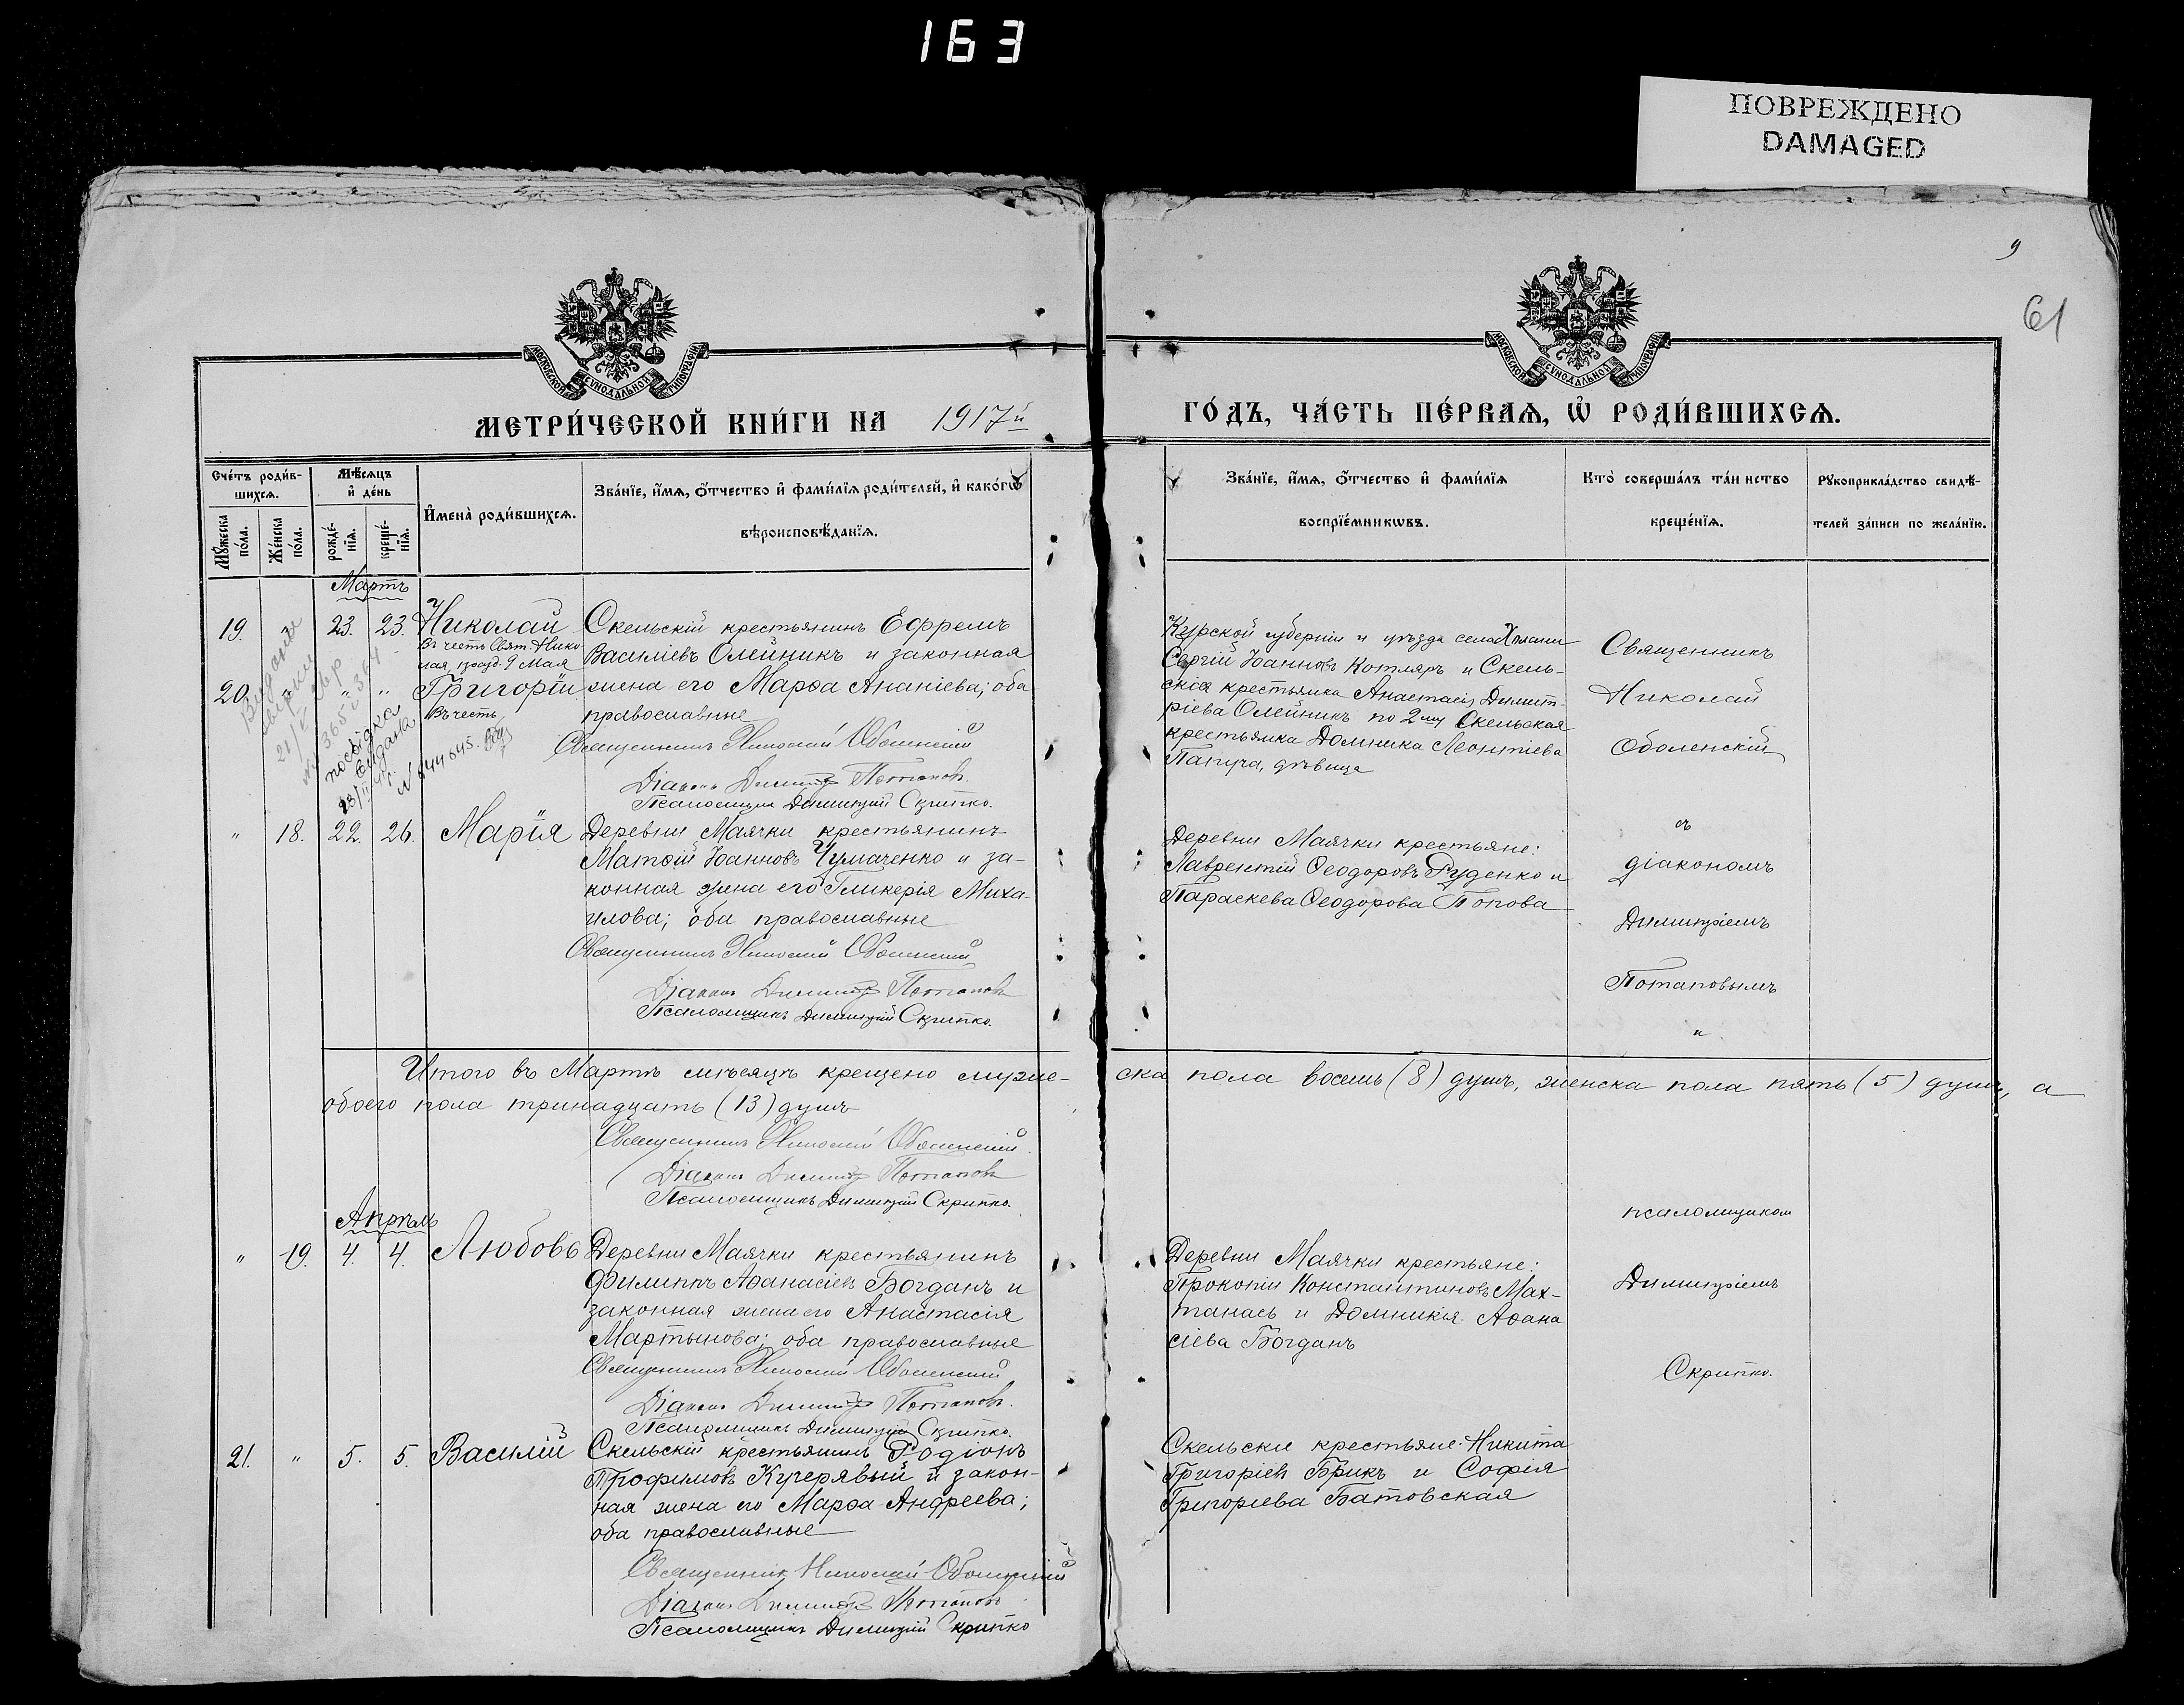 163
ПОВРЕЖДЕНО
DAMAGED
9
61
МОСКОВСКОЙ СѴНОДАЛЬНОЙ ТИПОГРАФІИ
МОСКОВСКОЙ СѴНОДАЛЬНОЙ ТИПОГРАФІИ
МЕТРИ́ЧЕСКОЙ КНИ́ГИ НА 1917й
ГО́ДЪ, ЧА́СТЬ ПЕ́РВАѦ, Ѡ҆ РОДИ́ВШИХСѦ.
Сче́тъ роди́в-
шихсѧ.
Мѣ́сѧцъ
и҆ де́нь
И҆мена̀ роди́вшихсѧ.
Зва́нїе, и҆́мѧ, ѻ҆́тчество и҆ фами́лїѧ роди́телей, и҆ како́гѡ
вѣроисповѣ́данїѧ.
Мꙋ́жеска
по́ла.
Же́нска
по́ла.
рожде́-
нїѧ.
креще́-
нїѧ.
Зва́нїе, и҆́мѧ, ѻ҆́тчество и҆ фами́лїѧ
воспрїе́мникѡвъ.
Кто̀ соверша́лъ та́инство
креще́нїѧ.
Рꙋкоприкла́дство свидѣ́-
телей за́писи по жела́нїю.
Мартъ
19. 23. 23. Николай
Въ честь Свят. Нико-
лая, празд. 9 Мая
20. " " " Григорій
Въ честь
Скельскій крестьянинъ Ефремъ
Василіевъ Олейникъ и законная
жена его Марѳа Ананіева; оба
православные
Священникъ Николай Оболенскій
Діаконъ Димитрій Потаповъ.
Псаломщикъ Димитрій Скрипко.
Курской губерніи и уѣзда села
Сергій Іоанновъ Котляръ и Скель-
ская крестьянка Анастасія Димит-
ріева Олейникъ по 2му Скельская
крестьянка Домника Леонтіева
Папуча, дѣвица
Священникъ
Николай
Оболенскій
съ
діакономъ
Димитріемъ
Потаповымъ
и
" 18. 22. 26. Марія
Деревни Маячки крестьянинъ
Матѳій Іоанновъ Чумаченко и за-
конная жена его Гликерія Миха-
илова; оба православные
Священникъ Николай Оболенскій
Діаконъ Димитрій Потаповъ
Псаломщикъ Димитрій Скрипко.
Деревни Маячки крестьяне:
Лаврентій Ѳеодоровъ Руденко и
Параскева Ѳеодорова Попова
Итого въ Мартѣ мѣсяцѣ крещено муже-
ска пола восемь (8) душъ, женска пола пять (5) душъ, а
обоего пола тринадцать (13) душъ
Священникъ Николай Оболенскій
Діаконъ Димитрій Потаповъ
Псаломщикъ Димитрій Скрипко.
псаломщикомъ
Димитріемъ
Скрипко.
Апрѣль
" 19. 4. 4. Любовь
Деревни Маячки крестьянинъ
Филиппъ Аѳанасіевъ Богданъ и
законная жена его Анастасія
Мартынова; оба православные
Священникъ Николай Оболенскій
Діаконъ Димитрій Потаповъ.
Псаломщикъ Димитрій Скрипко.
Деревни Маячки крестьяне:
Прокопій Константиновъ Мах-
танась и Домникія Аѳана
сіева Богданъ
21. " 5. 5. Василій
Скельскій крестьянинъ Родіонъ
Трофимовъ Кучерявый и закон-
ная жена его Марѳа Андреева;
оба православные
Священникъ Николай Оболенскій
Діаконъ Димитрій Потаповъ
Псаломщикъ Димитрій Скрипко
Скельски крестьяне: Никита
Григоріевъ Брикъ и Софія
Григорьева Батовская